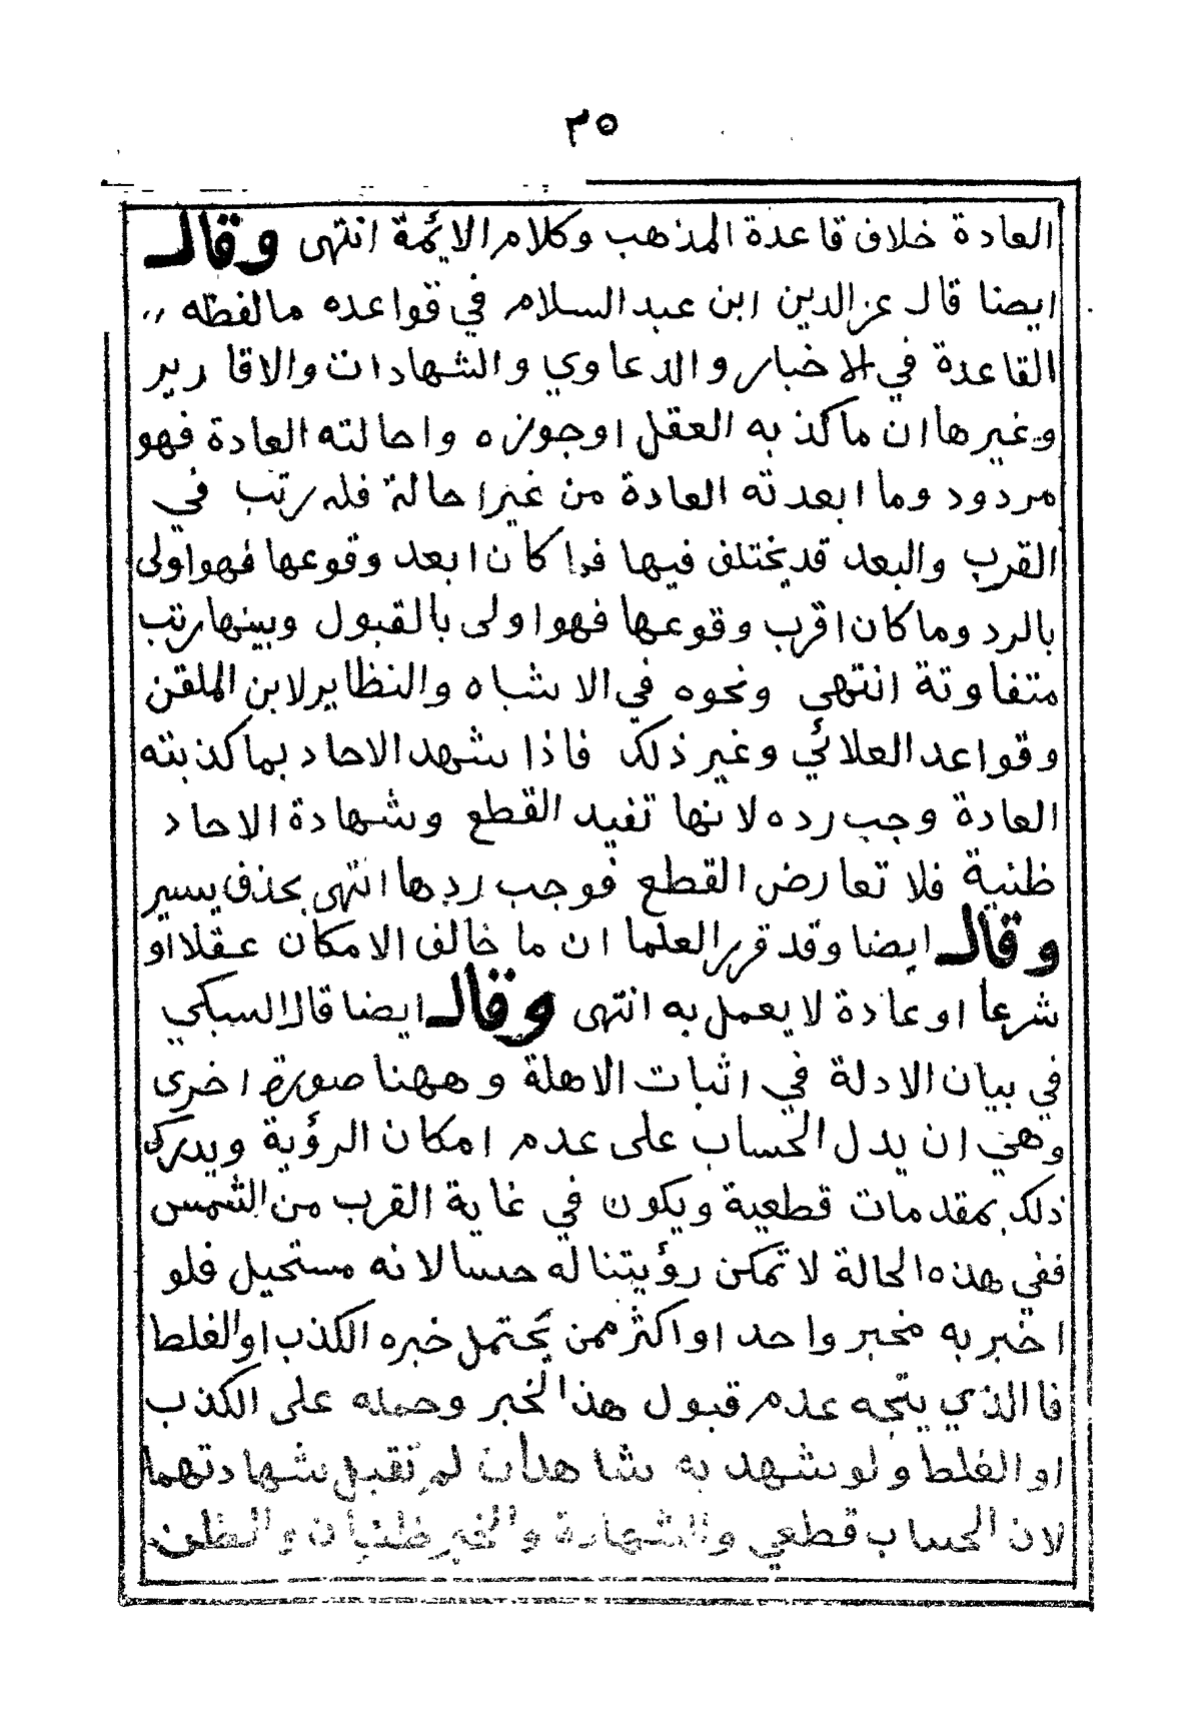 ٣٥
العادة خلاف قاعدة المذهب وكلام الائمة انتهى وقال
ايضا قال عزالدين ابن عبد السلام في قواعده مالفظه ،،
القاعدة في الاخبار والدعاوي والشهادات والاقارير
وغيرها ان ماكذبه العقل اوجوزه واحالته العادة فهو
مردود وما ابعدته العادة من غير احالة فله رتب في
القرب والبعد قد يختلف فيها فما كان ابعد وقوعها فهو اولى
بالرد وما كان اقرب وقوعها فهو اولى بالقبول وبينهما رتب
متفاوتة انتهى ونحوه في الاشباه والنظاير لابن الملقن
وقواعد العلائي وغير ذلك فاذا شهد الاحاد بما كذبته
العادة وجب رده لانها تفيد القطع وشهادة الاحاد
ظنية فلا تعارض القطع فوجب ردها انتهى بحذف يسير
وقال ايضا وقد قرر العلما ان ما خالف الامكان عقلا او
شرعا او عادة لا يعمل به انتهى وقال ايضا قال السبكي
في بيان الادلة في اثبات الاهلة وههنا صورة اخرى
وهي ان يدل الحساب على عدم امكان الرؤية ويدرك
ذلك بمقدمات قطعية ويكون في غاية القرب من الشمس
ففي هذه الحالة لا تمكن رؤيتنا له حسا لانه مستحيل فلو
اخبر به مخبر واحد او اكثر ممن يحتمل خبره الكذب او الغلط
فا الذي يتجه عدم قبول هذا الخبر وحمله على الكذب
او الغلط ولو شهد به شاهدان لم تقبل شهادتهما
لان الحساب قطعي والشهادة والخبر ظنيان والظن